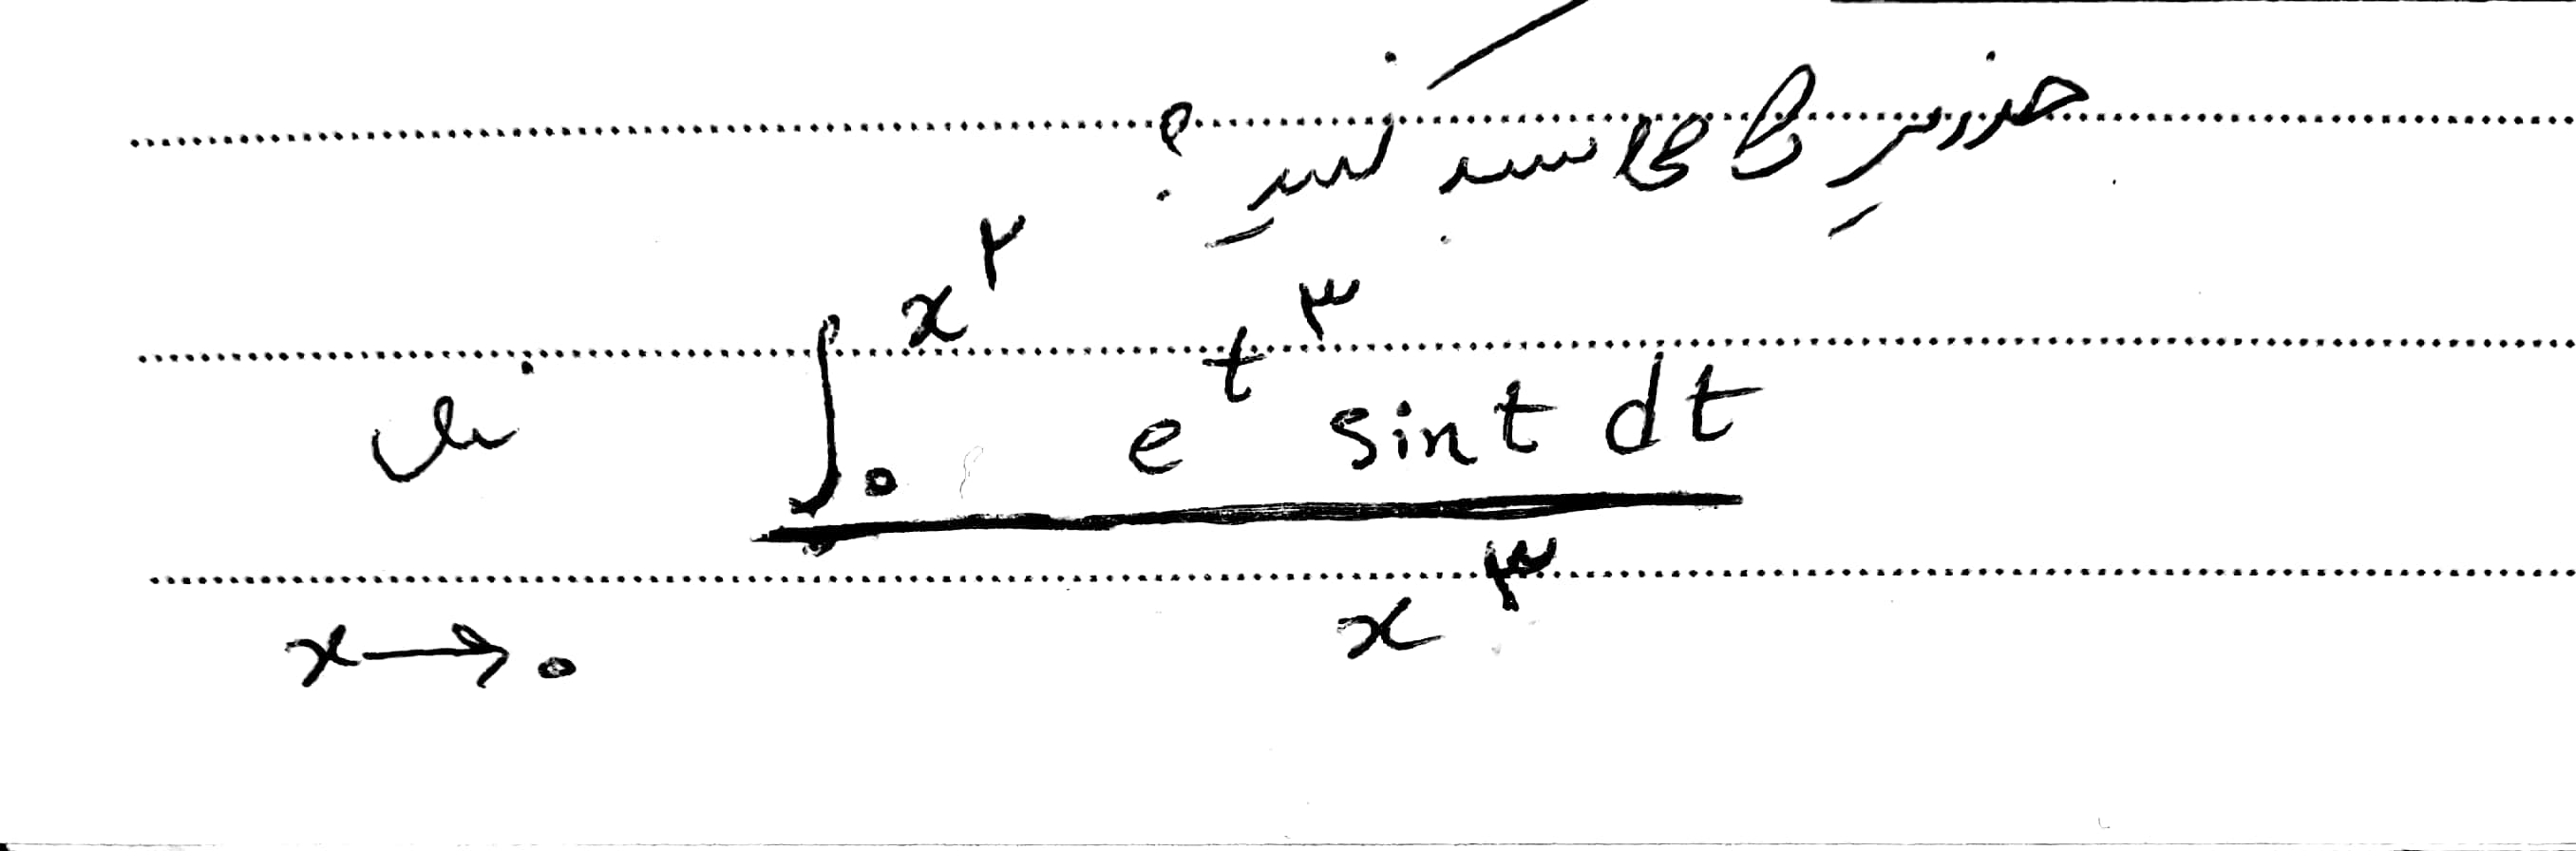 حد زیر را محاسبه کنید ؟
lim x→۰ ∫۰^x^۲ e^t^۳ sin t dt / x^۳